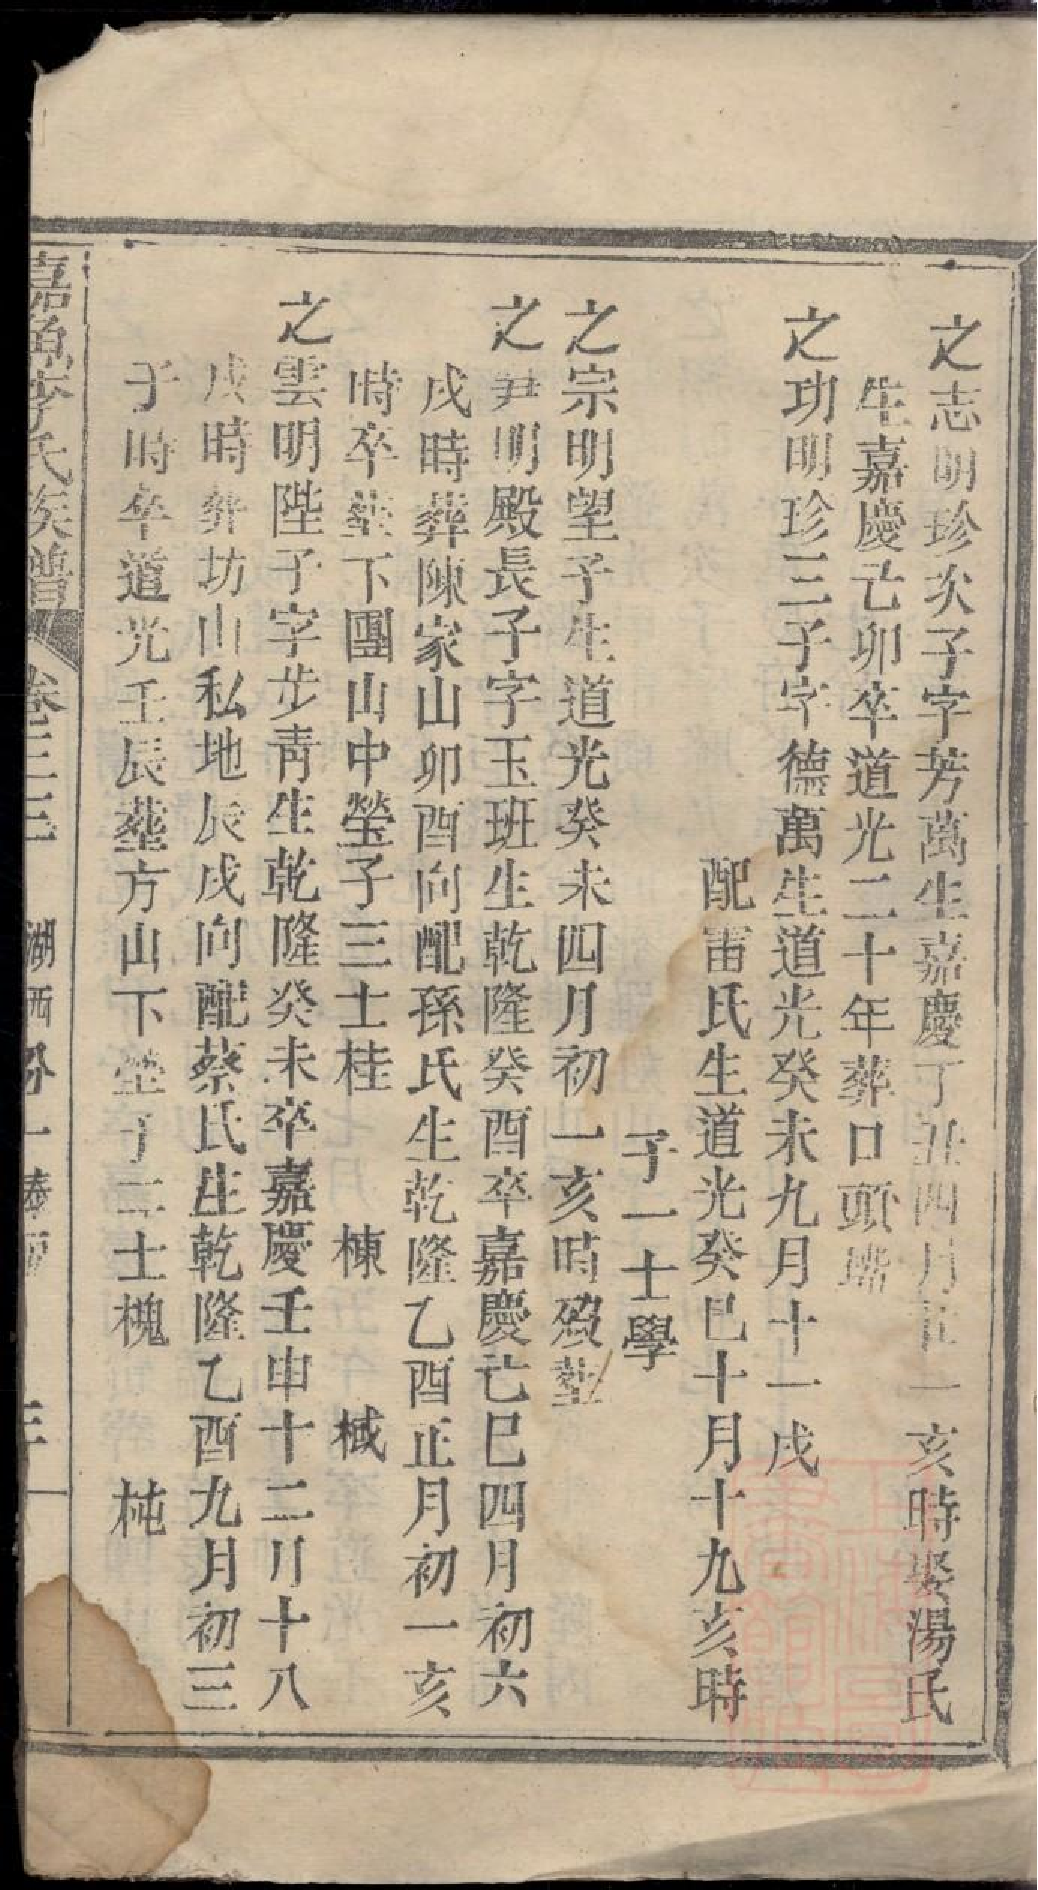 之志明珍次子字芳萬生嘉慶丁丑四月廿一亥時娶湯氏
生嘉慶己卯卒道光二十年葬口頭嘴
之功明珍三子字德萬生道光癸未九月十一戌
配雷氏生道光癸巳十月十九亥時
子一士學
之宗明望子生道光癸未四月初一亥時歿塟
之尹明殿長子字玉班生乾隆癸酉卒嘉慶己巳四月初六
戌時葬陳家山卯酉向配孫氏生乾隆乙酉正月初一亥
時卒塟下團山中塋子三士桂 棟 棫
之雲明陛子字步青生乾隆癸未卒嘉慶壬申十二月十八
戌時葬坊山私地辰戌向配蔡氏生乾隆乙酉九月初三
子時卒道光壬辰塟方山下塋子二士槐 杶
嘉魚李氏族譜 卷三三 湖西